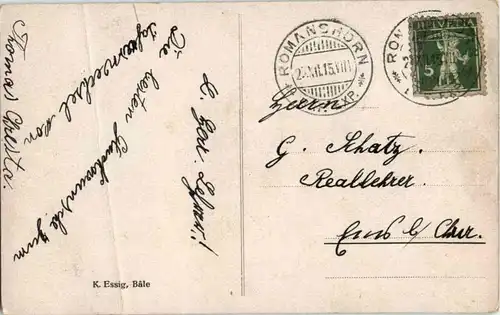 L. Gott. Lehrer!!
Die besten Glückwünsche zum
Jahreswechsel von
Thomas Christa.
K. Essig, Bâle
ROMANSHORN
EXP.
HELVETIA
5
Herrn
G. Schatz.
Reallehrer.
Ems b/ Chur.